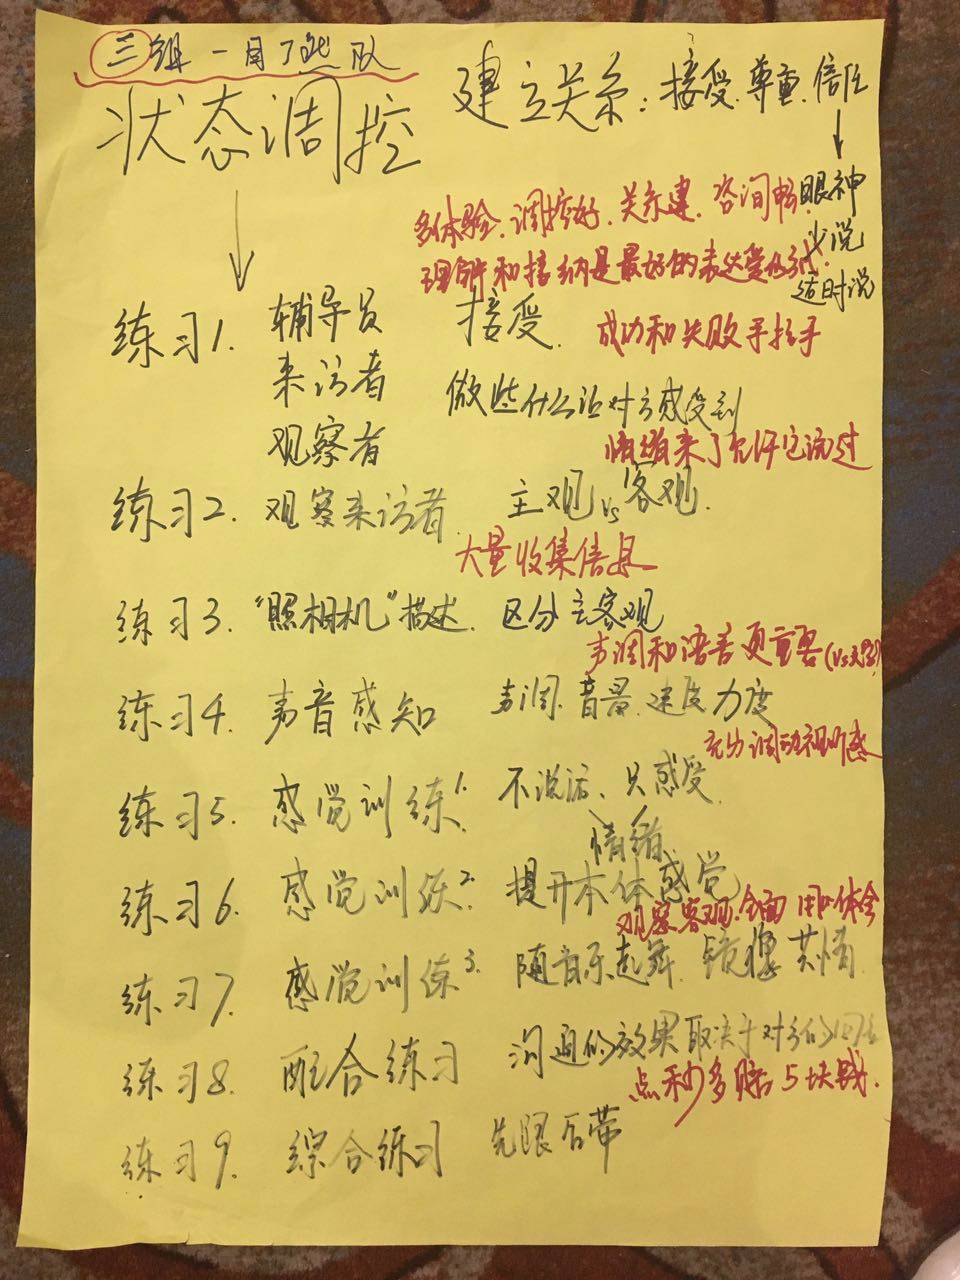 三组 一目了然队
状态调控 建立关系：接受.尊重.信任
多体验.调控好.关系建.咨询畅. 眼神
少说
理解和接纳是最好的表达 适时说
练习1. 辅导员 接受.
成功和失败手拉手
来访者
做些什么让对方感受到
观察者
情绪来了允许它流过
练习2. 观察来访者. 主观vs客观.
大量收集信息
练习3. “照相机”描述. 区分主客观
声调和语言更重要(vs文字)
练习4. 声音感知 声调.音量.速度力度
充分调动视听感
练习5. 感觉训练1. 不说话、只感受
情绪
练习6. 感觉训练2. 提升本体感觉
观察客观.全面 用心体会
练习7 感觉训练3. 随音乐起舞. 镜像 共情
练习8. 配合练习 沟通的效果取决于对方的回应
点秒多赔5块钱.
练习9. 综合练习 先跟后带